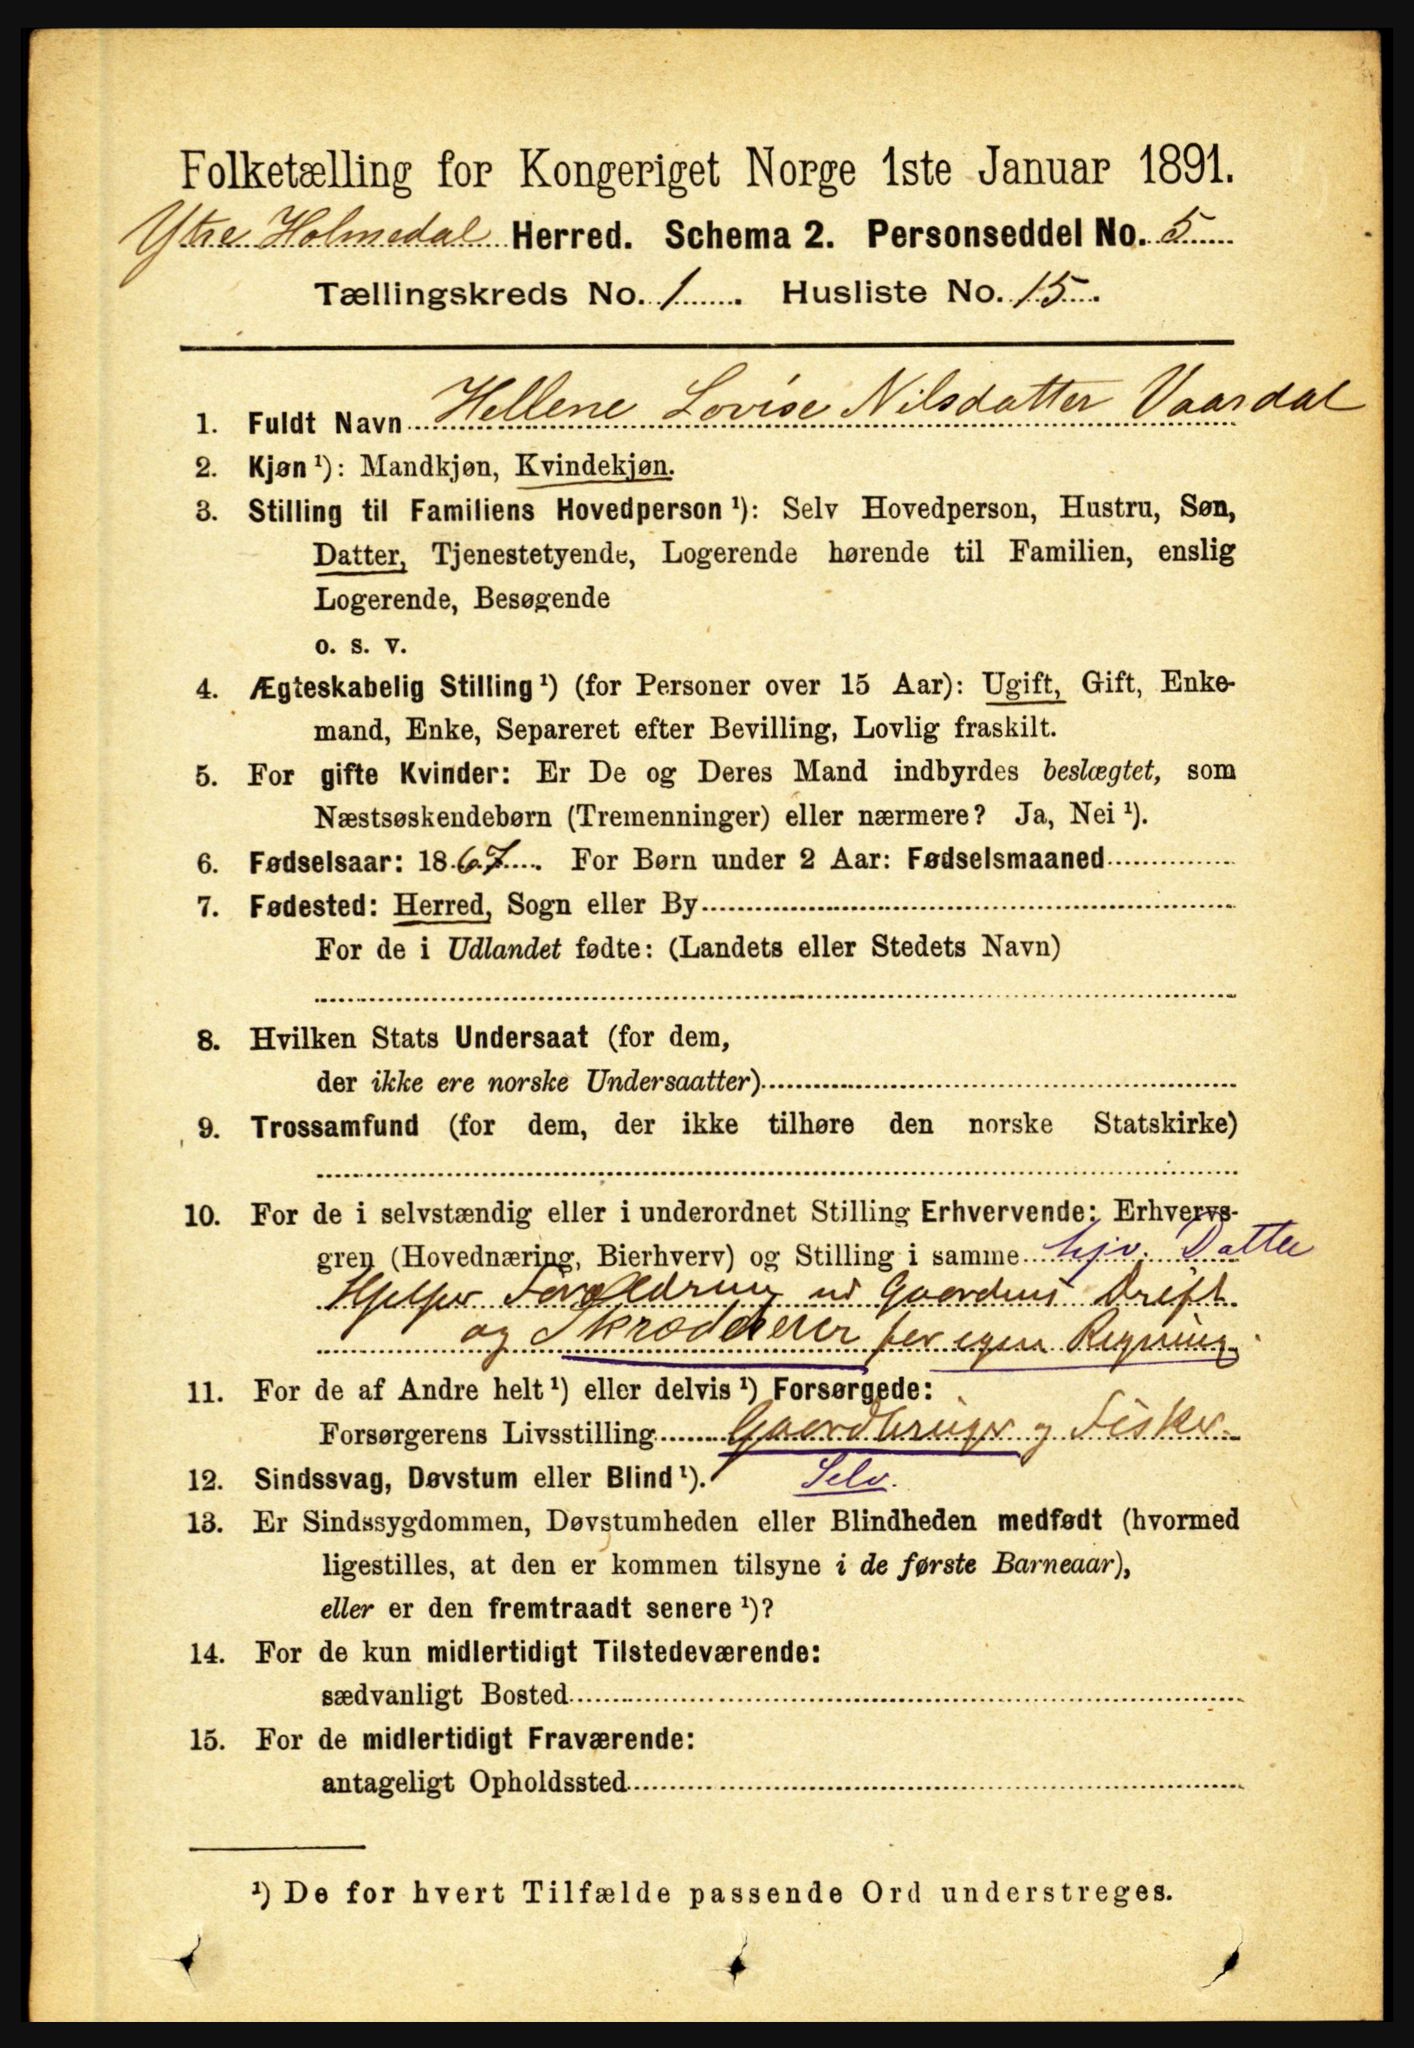 Folketælling for Kongeriget Norge 1ste Januar 1891.
Ytre Holmedal Herred. Schema 2. Personseddel No. 5
Tællingskreds No. 1. Husliste No. 15.
1. Fuldt Navn Hellene Lovise Nilsdatter Vaardal
2. Kjøn ¹): Mandkjøn, Kvindekjøn.
3. Stilling til Familiens Hovedperson ¹): Selv Hovedperson, Hustru, Søn,
Datter, Tjenestetyende, Logerende hørende til Familien, enslig
Logerende, Besøgende
o. s. v.
4. Ægteskabelig Stilling ¹) (for Personer over 15 Aar): Ugift, Gift, Enke-
mand, Enke, Separeret efter Bevilling, Lovlig fraskilt.
5. For gifte Kvinder: Er De og Deres Mand indbyrdes beslægtet, som
Næstsøskendebørn (Tremenninger) eller nærmere? Ja, Nei ¹).
6. Fødselsaar: 1867. For Børn under 2 Aar: Fødselsmaaned
7. Fødested: Herred, Sogn eller By
For de i Udlandet fødte: (Landets eller Stedets Navn)
8. Hvilken Stats Undersaat (for dem,
der ikke ere norske Undersaatter)
9. Trossamfund (for dem, der ikke tilhøre den norske Statskirke)
10. For de i selvstændig eller i underordnet Stilling Erhvervende: Erhvervs-
gren (Hovednæring, Bierhverv) og Stilling i samme hjv. Datter
Hjelper Forældrene ved Gaardens Drift
og Skrædderer for egen Regning.
11. For de af Andre helt ¹) eller delvis ¹) Forsørgede:
Forsørgerens Livsstilling Gaardbruger og Fisker
12. Sindssvag, Døvstum eller Blind ¹). Selv.
13. Er Sindssygdommen, Døvstumheden eller Blindheden medfødt (hvormed
ligestilles, at den er kommen tilsyne i de første Barneaar),
eller er den fremtraadt senere ¹)?
14. For de kun midlertidigt Tilstedeværende:
sædvanligt Bosted
15. For de midlertidigt Fraværende:
antageligt Opholdssted
¹) De for hvert Tilfælde passende Ord understreges.